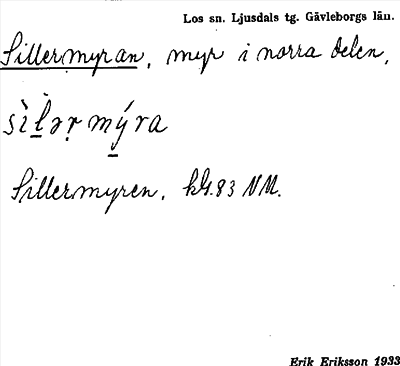 Los sn. Ljusdals tg. Gävleborgs län.
Sillermyran, myr i norra delen,
sìl̲əṛ mý̲ra
Sillermyren, 83 NM.
Erik Eriksson 1933